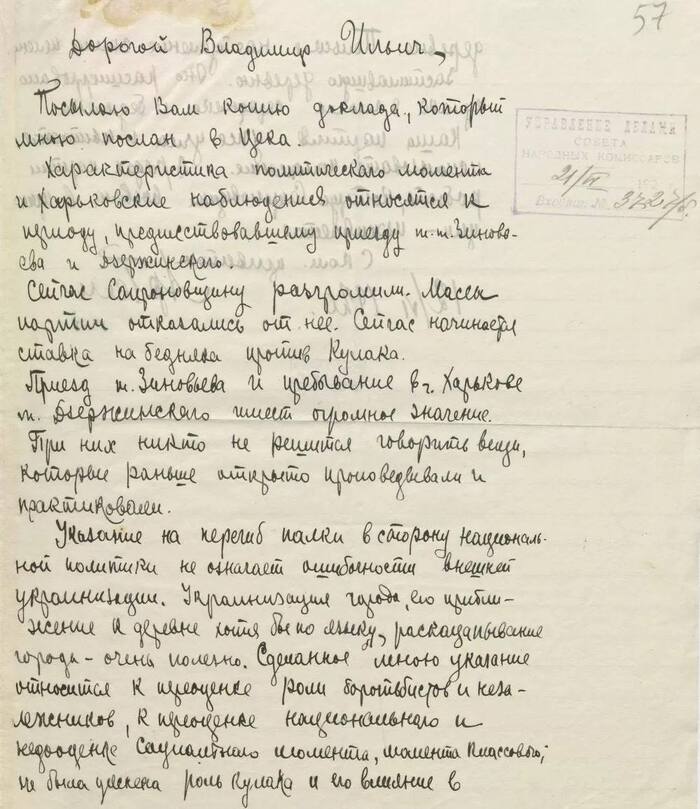 57
Дорогой Владимир Ильич,
Посылаю Вам копию доклада, который
мною послан в Цека.
Характеристика политического момента
и Харьковские наблюдения относятся к
периоду, предшествовавшему приезду т.т. Зиновь-
ева и Дзержинского.
Сейчас Сапроновщину разгромили. Массы
партии отказались от нее. Сейчас начинается
ставка на бедняка против Кулака.
Приезд т. Зиновьева и пребывание в г. Харькове
т. Дзержинского имеет огромное значение.
При них никто не решится говорить вещи,
которые раньше открыто проповедывали и
практиковали.
Указание на перегиб палки в сторону националь-
ной политики не означает ошибочности внешней
украинизации. Украинизация города, его прибли-
жение к деревне хотя бы по языку, раскацапывание
города – очень полезно. Сделанное мною указание
относится к переоценке роли боротьбистов и неза-
лежников, к переоценке национального и
недооценке социального момента, момента классового;
не была учтена роль кулака и его влияние в
УПРАВЛЕНИЕ ДЕЛАМИ
СОВЕТА
НАРОДНЫХ КОМИССАРОВ
21/VI 192
Входящ. № 3727/б.